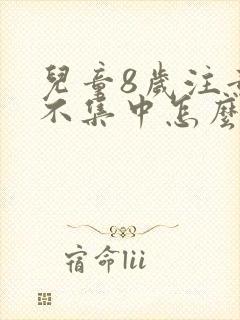 兒童8歲注意
不集中怎麼
宿命lii